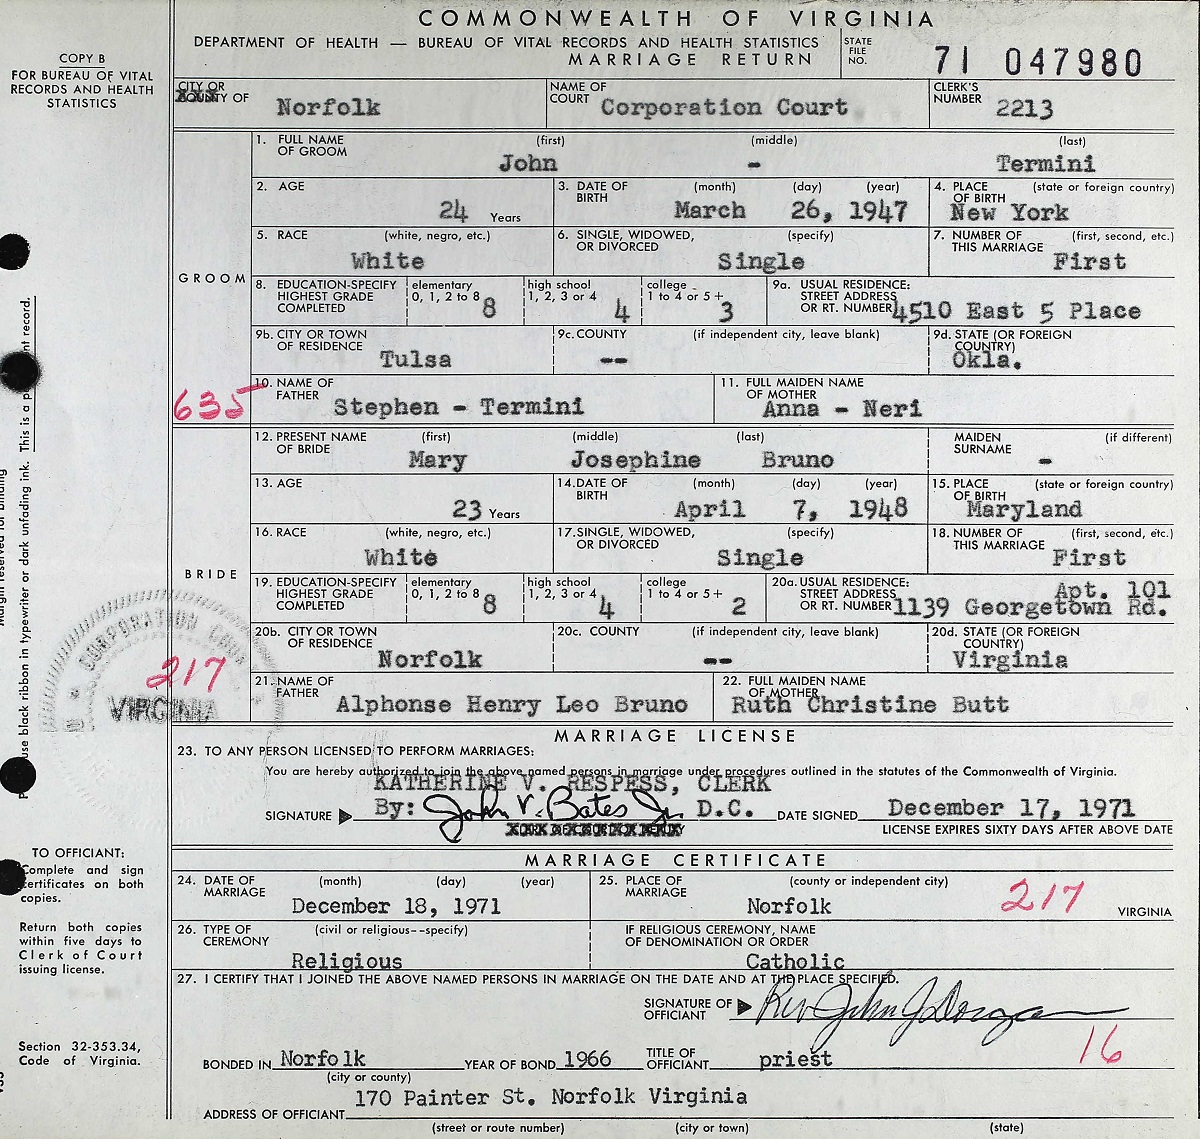 COMMONWEALTH OF VIRGINIA
DEPARTMENT OF HEALTH — BUREAU OF VITAL RECORDS AND HEALTH STATISTICS
MARRIAGE RETURN
STATE FILE NO. 71 047980
COPY B
FOR BUREAU OF VITAL
RECORDS AND HEALTH
STATISTICS
CITY OR COUNTY OF Norfolk NAME OF COURT Corporation Court CLERK'S NUMBER 2213
GROOM
1. FULL NAME OF GROOM (first) John (middle) - (last) Termini
2. AGE 24 Years 3. DATE OF BIRTH (month) (day) (year) March 26, 1947 4. PLACE OF BIRTH (state or foreign country) New York
5. RACE (white, negro, etc.) White 6. SINGLE, WIDOWED, OR DIVORCED (specify) Single 7. NUMBER OF THIS MARRIAGE (first, second, etc.) First
8. EDUCATION-SPECIFY HIGHEST GRADE COMPLETED elementary 0, 1, 2 to 8 8 high school 1, 2, 3 or 4 4 college 1 to 4 or 5+ 3 9a. USUAL RESIDENCE: STREET ADDRESS OR RT. NUMBER 4510 East 5 Place
9b. CITY OR TOWN OF RESIDENCE Tulsa 9c. COUNTY (if independent city, leave blank) -- 9d. STATE (OR FOREIGN COUNTRY) Okla.
635
10. NAME OF FATHER Stephen - Termini 11. FULL MAIDEN NAME OF MOTHER Anna - Neri
BRIDE
12. PRESENT NAME OF BRIDE (first) Mary (middle) Josephine (last) Bruno MAIDEN SURNAME (if different) -
13. AGE 23 Years 14. DATE OF BIRTH (month) (day) (year) April 7, 1948 15. PLACE OF BIRTH (state or foreign country) Maryland
16. RACE (white, negro, etc.) White 17. SINGLE, WIDOWED, OR DIVORCED (specify) Single 18. NUMBER OF THIS MARRIAGE (first, second, etc.) First
19. EDUCATION-SPECIFY HIGHEST GRADE COMPLETED elementary 0, 1, 2 to 8 8 high school 1, 2, 3 or 4 4 college 1 to 4 or 5+ 2 20a. USUAL RESIDENCE: STREET ADDRESS OR RT. NUMBER Apt. 101 1139 Georgetown Rd.
20b. CITY OR TOWN OF RESIDENCE Norfolk 20c. COUNTY (if independent city, leave blank) -- 20d. STATE (OR FOREIGN COUNTRY) Virginia
217
CORPORATION
VIRGINIA
21. NAME OF FATHER Alphonse Henry Leo Bruno 22. FULL MAIDEN NAME OF MOTHER Ruth Christine Butt
MARRIAGE LICENSE
23. TO ANY PERSON LICENSED TO PERFORM MARRIAGES:
You are hereby authorized to join the above named persons in marriage under procedures outlined in the statutes of the Commonwealth of Virginia.
KATHERINE V. RESPESS, CLERK
SIGNATURE By: John V. Bates Jr. D.C. DATE SIGNED December 17, 1971
LICENSE EXPIRES SIXTY DAYS AFTER ABOVE DATE
MARRIAGE CERTIFICATE
24. DATE OF MARRIAGE (month) (day) (year) December 18, 1971 25. PLACE OF MARRIAGE (county or independent city) Norfolk 217 VIRGINIA
26. TYPE OF CEREMONY (civil or religious--specify) Religious IF RELIGIOUS CEREMONY, NAME OF DENOMINATION OR ORDER Catholic
27. I CERTIFY THAT I JOINED THE ABOVE NAMED PERSONS IN MARRIAGE ON THE DATE AND AT THE PLACE SPECIFIED.
SIGNATURE OF OFFICIANT Rev John J Dorgan
16
BONDED IN Norfolk (city or county) YEAR OF BOND 1966 TITLE OF OFFICIANT priest
ADDRESS OF OFFICIANT 170 Painter St. Norfolk Virginia
(street or route number) (city or town) (state)
TO OFFICIANT:
Complete and sign
certificates on both
copies.
Return both copies
within five days to
Clerk of Court
issuing license.
Section 32-353.34,
Code of Virginia.
use black ribbon in typewriter or dark unfading ink. This is a record.
Margin reserved for binding